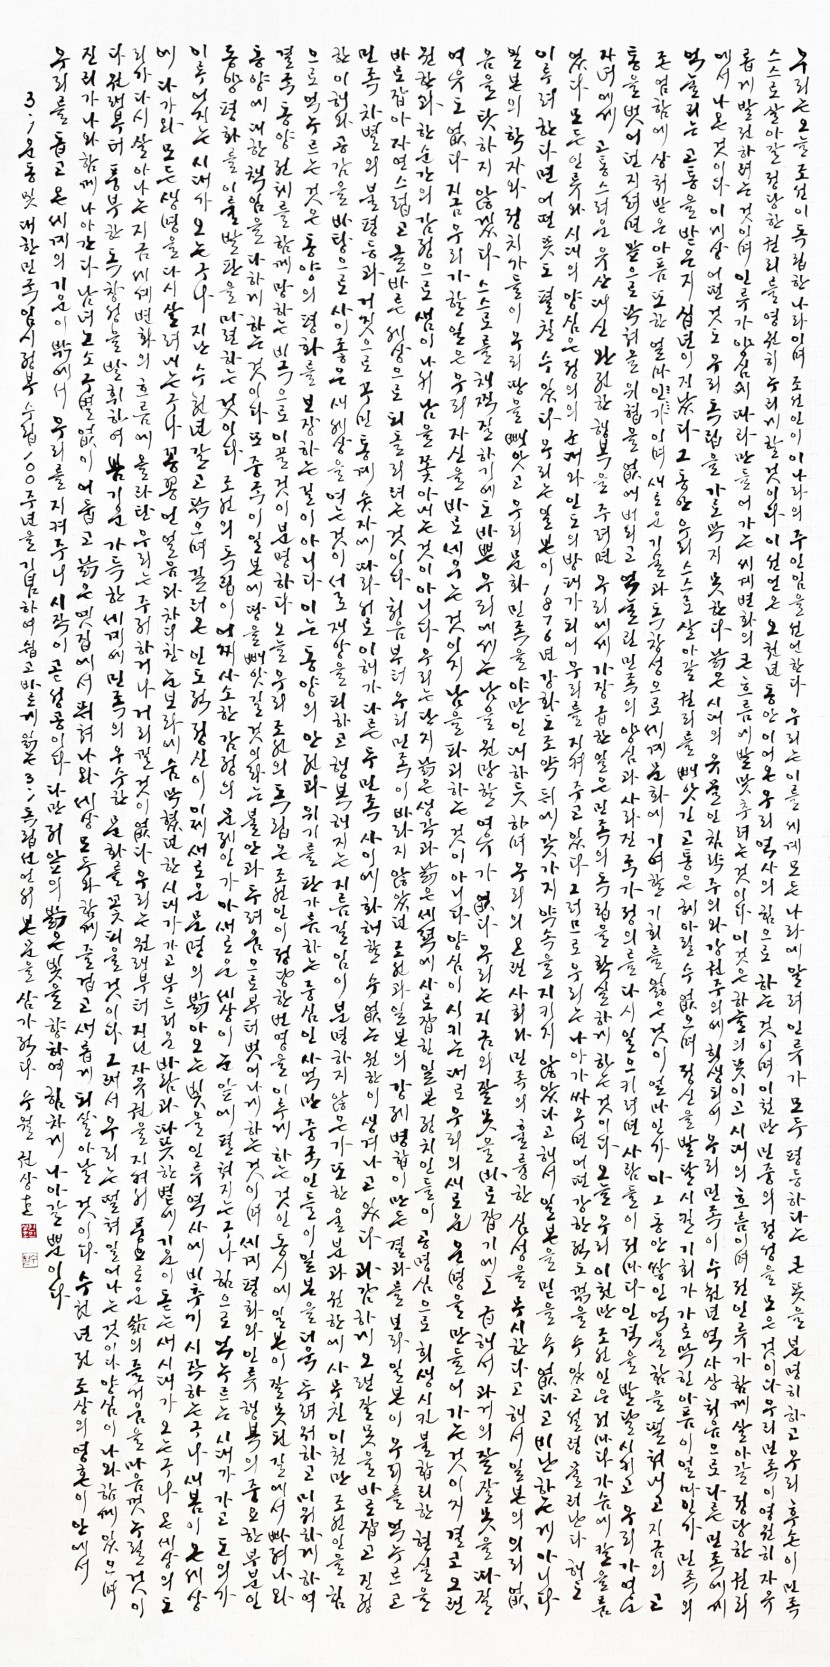 우리는 오늘 조선이 독립한 나라이며 조선인이 이나라의 주인임을 선언한다 우리는 이를 세계 모든 나라에 알려 인류가 모두 평등하다는 큰 뜻을 분명히 하고 우리 후손이 민족
스스로 살아갈 정당한 권리를 영원히 누리게 할것이다 이 선언은 오천년 동안 이어온 우리 역사의 힘으로 하는 것이며 이천만 민중의 정성을 모은 것이다 우리 민족이 영원히 자유
롭게 발전하려는 것이며 인류가 양심에 따라 만들어가는 세계변화의 큰 흐름에 발맞추려는 것이다 이것은 하늘의 뜻이고 시대의 흐름이며 전 인류가 함께 살아갈 정당한 권리
에서 나온 것이다 이세상 어떤것도 우리 독립을 가로막지 못한다 낡은 시대의 유물인 침략주의와 강권주의에 희생되어 우리 민족이 수천년 역사상 처음으로 다른 민족에게
억눌리는 고통을 받은지 십년이 지났다 그동안 우리 스스로 살아갈 권리를 빼앗긴 고통은 헤아릴 수 없으며 정신을 발달시킬 기회가 가로막힌 아픔이 얼마인가 민족의
존엄함에 상처받은 아픔 또한 얼마인가이며 새로운 기술과 독창성으로 세계 문화에 기여할 기회를 잃은것이 얼마인가 아 그동안 쌓인 억울함을 떨쳐내고 지금의 고
통을 벗어던지려면 앞으로 닥쳐올 위협을 없애버리고 억눌린 민족의 양심과 사라진 국가정의를 다시 일으키려면 사람들이 저마다 인격을 발달시키고 우리 가여운
자녀에게 고통스러운 유산 대신 완전한 행복을 주려면 우리에게 가장 급한일은 민족의 독립을 확실하게 하는 것이다 오늘 우리 이천만 조선인은 저마다 가슴에 칼을 품
었다 모든 인류와 시대의 양심은 정의의 군대와 인도의 방패가 되어 우리를 지켜주고 있다 그러므로 우리는 나아가 싸우면 어떤 강한적도 꺾을 수 있고 설령 물러난다 해도
이루려한다면 어떤 뜻도 펼칠 수 있다 우리는 일본이 1876년 강화도조약 뒤에 갖가지 약속을 지키지 않았다고 해서 일본을 믿을 수 없다고 비난하는게 아니다
일본의 학자와 정치가들이 우리 땅을 빼앗고 우리 문화민족을 야만인 대하듯 하며 우리의 오랜 사회와 민족의 훌륭한 심성을 무시한다고 해서 일본의 의리 없
음을 탓하지 않겠다 스스로를 채찍질하기에도 바쁜 우리에게는 남을 원망할 여유가 없다 우리는 지금의 잘못을 바로잡기에도 급해서 과거의 잘잘못을 따질
여유도 없다 지금 우리가 할일은 우리 자신을 바로세우는 것이지 남을 파괴하는것이 아니다 양심이 시키는대로 우리의 새로운 운명을 만들어가는 것이지 결코 오랜
원한과 한순간의 감정으로 샘이나서 남을 쫓아내는것이 아니다 우리는 단지 낡은 생각과 낡은 세력에 사로잡힌 일본 정치인들이 공명심으로 희생시킨 불합리한 현실을
바로잡아 자연스럽고 올바른 세상으로 되돌리려는 것이다 처음부터 우리 민족이 바라지 않았던 조선과 일본의 강제병합이 만든 결과를 보라 일본이 우리를 억누르고
민족 차별의 불평등과 거짓으로 꾸민 통계 숫자에 따라 서로 이해가 다른 두 민족 사이에 화해할 수 없는 원한이 생겨나고 있다 과감하게 오랜 잘못을 바로잡고 진정
한 이해와 공감을 바탕으로 사이좋은 새세상을 여는것이 서로 재앙을 피하고 행복해지는 지름길임이 분명하지 않은가 또한 울분과 원한에 사무친 이천만 조선인을 힘
으로 억누르는 것은 동양의 평화를 보장하는 길이 아니다 이는 동양의 안전과 위기를 판가름하는 중심인 사억만 중국인들이 일본을 더욱 두려워하고 미워하게 하여
결국 동양 전체를 함께 망하는 비극으로 이끌 것이 분명하다 오늘 우리 조선의 독립은 조선인이 정당한 번영을 이루게 하는것인 동시에 일본이 잘못된 길에서 빠져나와
동양에 대한 책임을 다하게 하는 것이다 또 중국이 일본에 땅을 빼앗길 것이라는 불안과 두려움으로부터 벗어나게 하는것이며 세계평화와 인류행복의 중요한 부분인
동양평화를 이룰 발판을 마련하는 것이다 조선의 독립이 어찌 사소한 감정의 문제인가 아 새로운 세상이 눈앞에 펼쳐지는구나 힘으로 억누르는 시대가 가고 도의가
이루어지는 시대가 오는구나 지난 수천년 갈고닦으며 길러온 인도적 정신이 이제 새로운 문명의 밝아오는 빛을 인류역사에 비추기 시작하는구나 새봄이 온세상
에 다가와 모든 생명을 다시 살려내는구나 꽁꽁언 얼음과 차디찬 눈보라에 숨막혔던 한시대가 가고 부드러운 바람과 따뜻한 볕에 기운이 돋는 새시대가 오는구나 온세상의 도
리가 다시 살아나는 지금 세계변화의 흐름에 올라탄 우리는 주저하거나 거리낄 것이 없다 우리는 원래부터 지닌 자유권을 지켜서 풍요로운 삶의 즐거움을 마음껏 누릴것이
다 원래부터 풍부한 독창성을 발휘하여 봄기운 가득한 세계에 민족의 우수한 문화를 꽃피울것이다 그래서 우리는 떨쳐 일어나는 것이다 양심이 나와 함께 있으며
진리가 나와 함께 나아간다 남녀노소 구별없이 어둡고 낡은 옛집에서 뛰쳐나와 세상 모두와 함께 즐겁고 새롭게 되살아날 것이다 수천년 전 조상의 영혼이 안에서
우리를 돕고 온 세계의 기운이 밖에서 우리를 지켜주니 시작이 곧 성공이다 다만 저 앞의 밝은 빛을 향하여 힘차게 나아갈 뿐이다
3.1운동 및 대한민국임시정부수립 100주년을 기념하여 쉽고 바르게 읽는 3.1독립선언서 본문을 삼가적다 수월 권상호